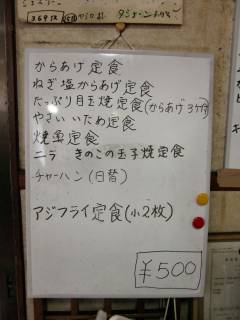 からあげ定食
ねぎ塩からあげ定食
たっぷり目玉焼定食(からあげ3ケ付)
やさいいため定食
焼魚定食
ニラ きのこの玉子焼定食
チャーハン(日替)
アジフライ定食(小2枚)
¥500